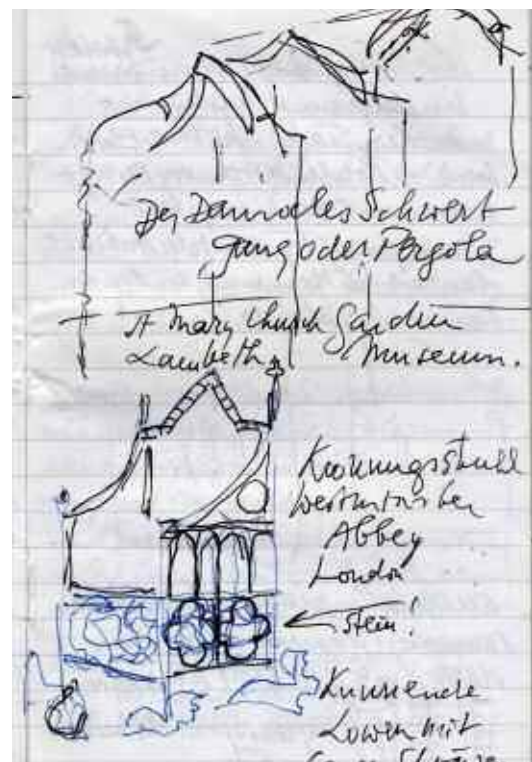 Des Damocles Schwert
gang oder Pergola
St Mary Church Garden
Lambeth Museum.
Krönungsstuhl
Westminster
Abbey
London
Stein!
Knieende
Löwen mit